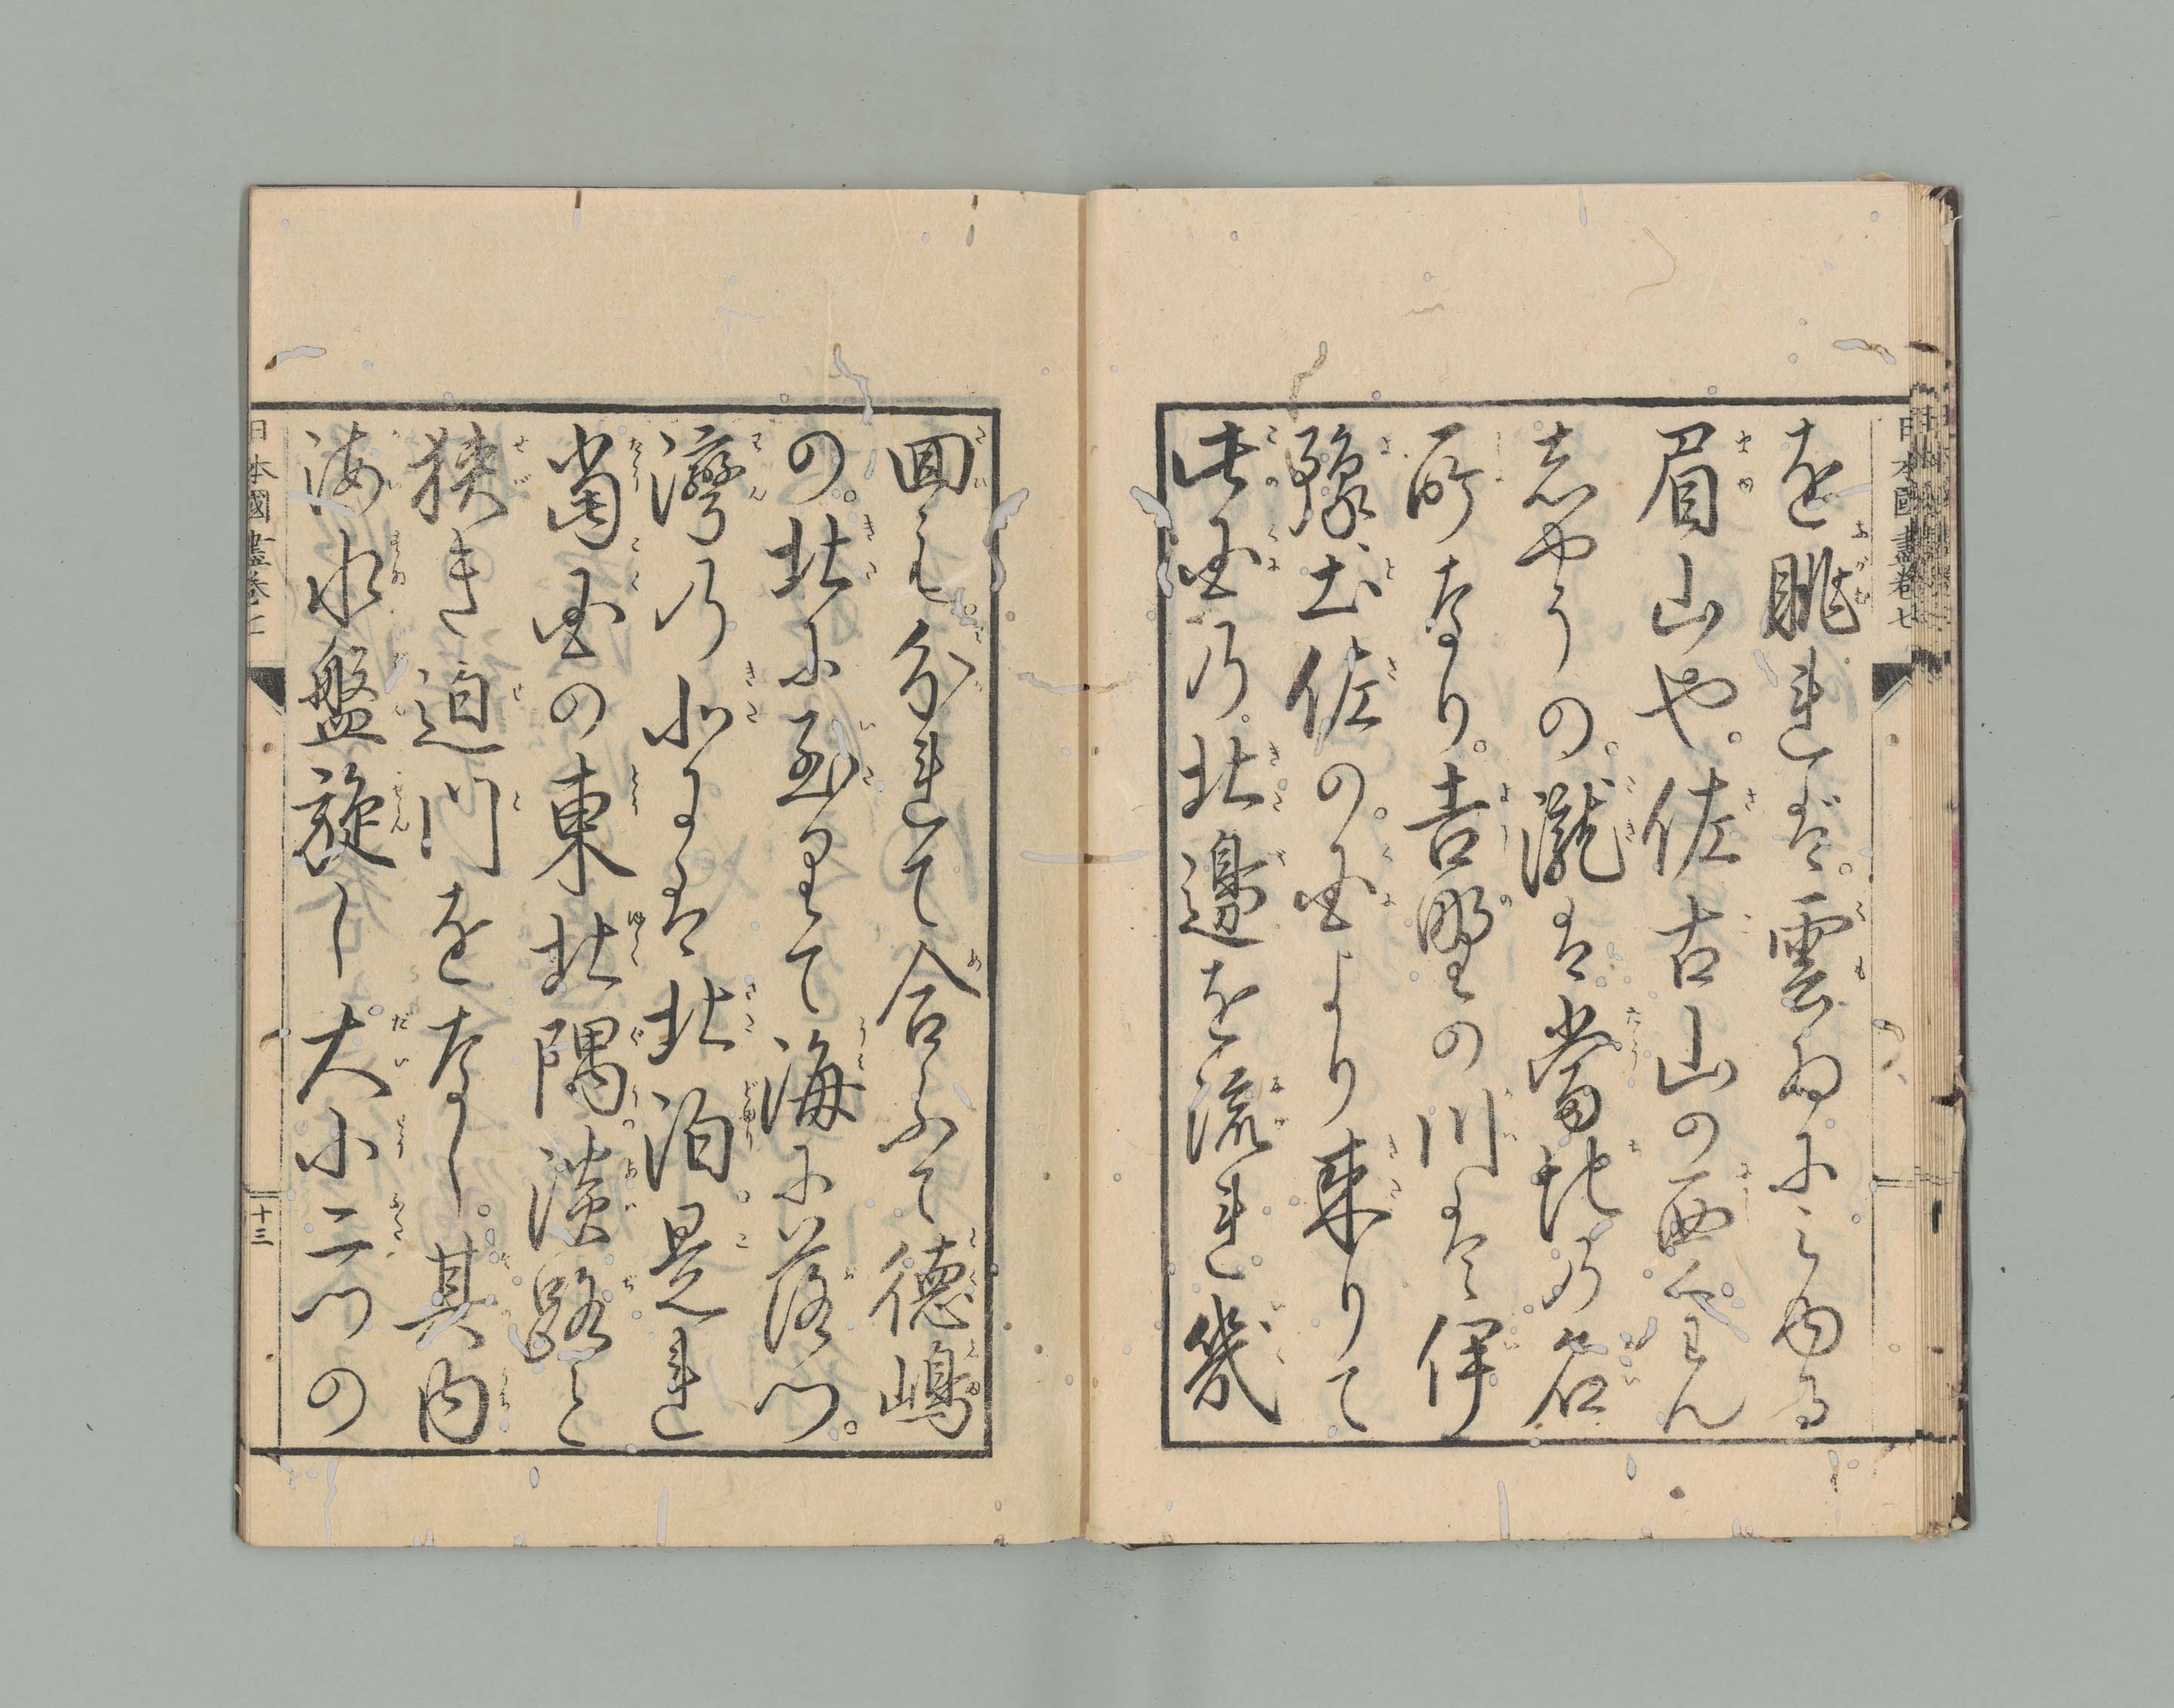 日本國盡卷七
を眺れば。雲ゐにミゆる
眉山や。佐古山の西くわん
志やうの。瀧は當地の名
所なり。吉野の川は伊
豫土佐の。国より来りて
此国の。北邊を流れ幾
回も分れて合ふて徳嶋
の。北に至りて海に落つ。
灣の北には北泊。是れ
當国の東北隅。淡路と
狭き迫門をなし。其内
海水盤旋し大小二つの
日本國盡卷七
十三